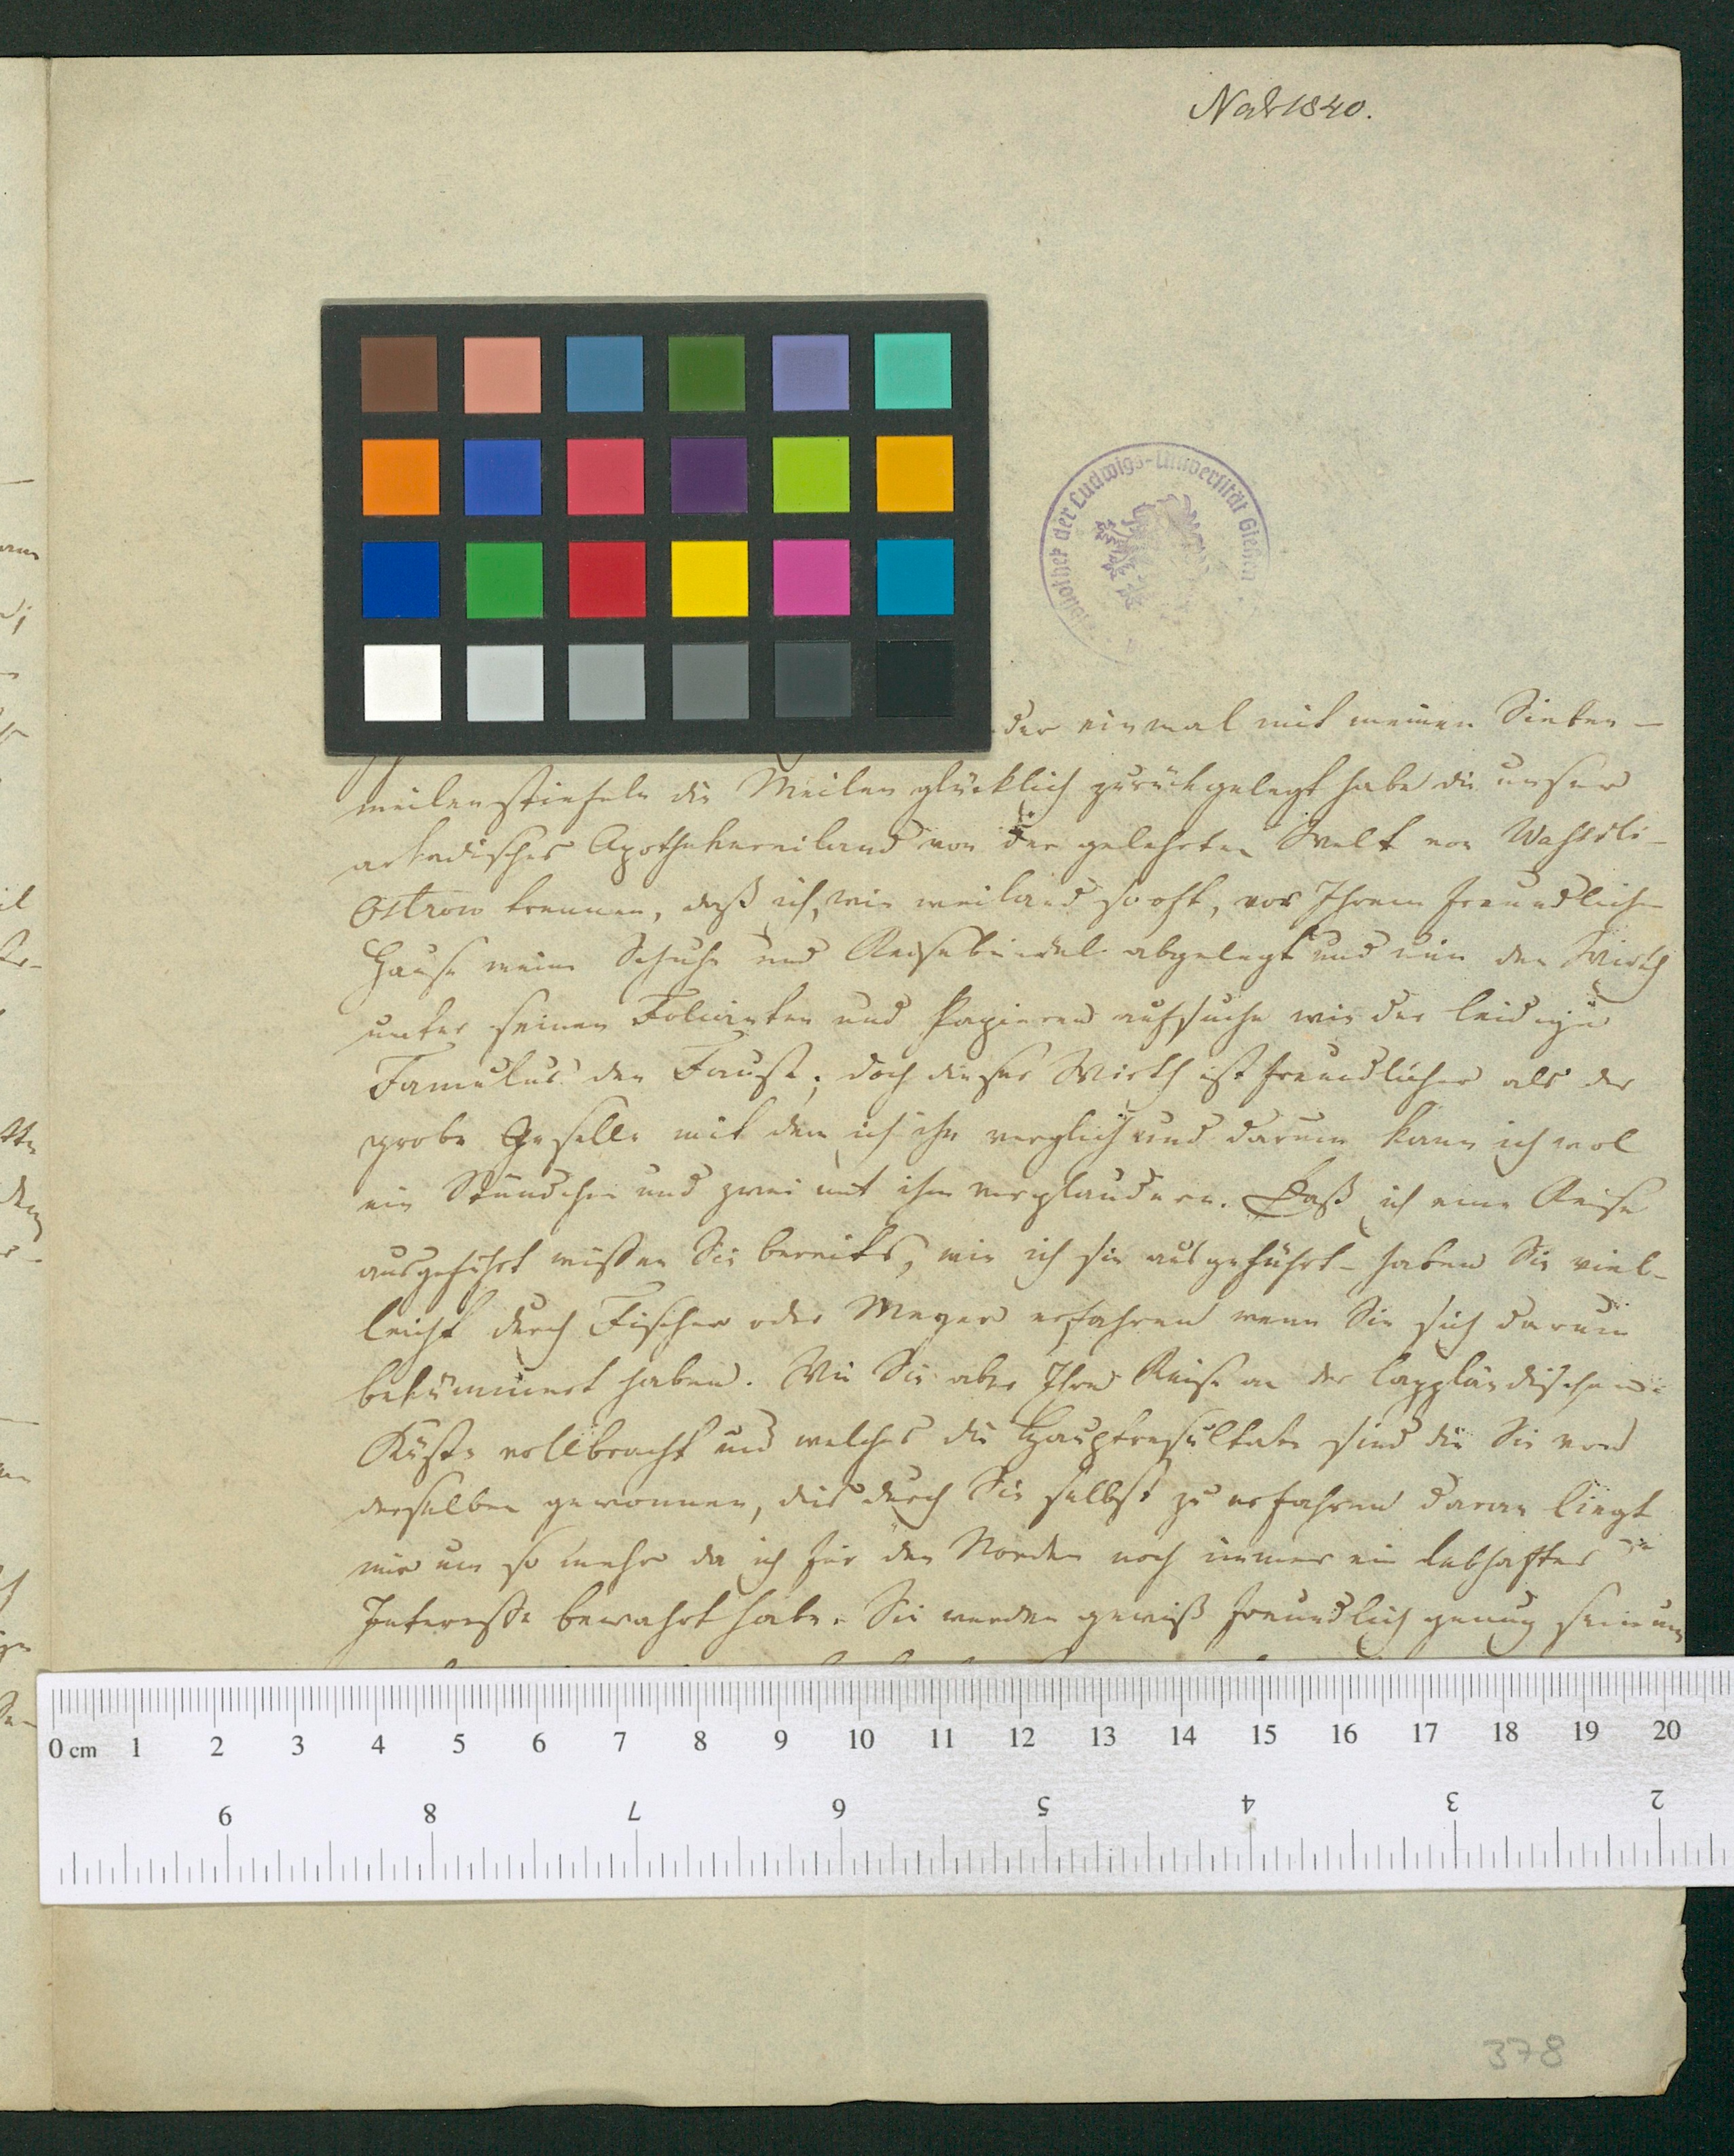 Nov 1840.
Bibliothek der Ludwigs-Universität Gießen
der einmal mit meinen Sieben-
meilenstiefeln die Meilen glücklich zurückgelegt habe die unser
arkadisches Apothekereiland von der gelehrten Welt von Wassili-
Ostrow trennen, daß ich, wie weiland so oft, vor Ihrem freundlichen
Hause meine Schuhe und Reisebündel abgelegt und nun den Wirth
unter seinen Folianten und Papieren aufsuche wie der leidige
Famulus den Faust; doch dieser Wirth ist freundlicher als der
grobe Geselle mit dem ich ihn verglich und darum kann ich wol
ein Stündchen und zwei mit ihm verplaudern. Daß ich eine Reise
ausgeführt wissen Sie bereits, wie ich sie ausgeführt – haben Sie viel-
leicht durch Fischer oder Meyer erfahren wenn Sie sich darum
bekümmert haben. Wie Sie aber Ihre Reise an der lappländischen
Küste vollbracht und welches die Hauptresultate sind die Sie von
derselben gewonnen, dies durch Sie selbst zu erfahren daran liegt
mir um so mehr da ich für den Norden noch immer ein lebhaftes
Interesse bewahrt habe. Sie werden gewiß freundlich genug sein um
0 cm 1 2 3 4 5 6 7 8 9 10 11 12 13 14 15 16 17 18 19 20
9 8 7 6 5 4 3 2
378